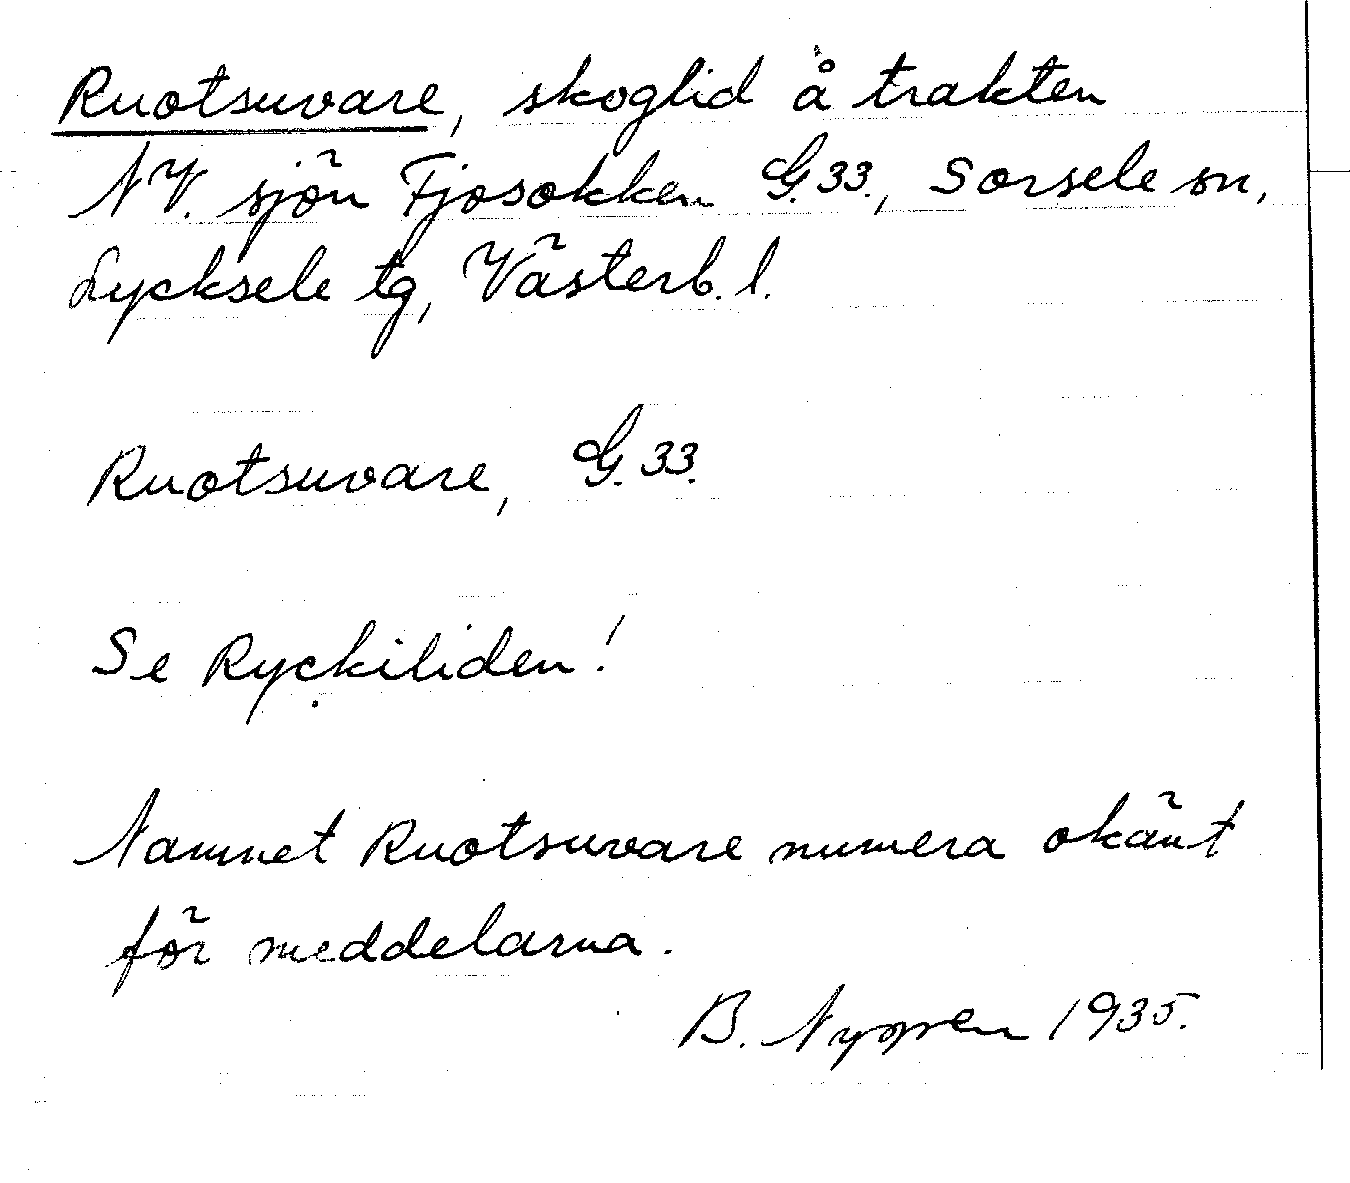 Ruotsuvare, skoglid å trakten
NV. sjön Fjosokken G.33., Sorsele sn,
Lycksele tg, Västerb. l.
Ruotsuvare, G.33.
Se Ryckiliden!
Namnet Ruotsuvare numera okänt
för meddelarna.
B. Nyman 1935.